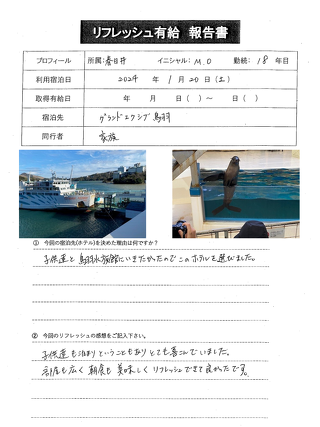 リフレッシュ有給 報告書
プロフィール 所属:春日井 イニシャル: M.O 勤続: 18 年目
利用宿泊日 2024 年 1 月 20 日 (土)
取得有給日 年 月 日 ( ) ～ 日 ( )
宿泊先 グランドエクシブ鳥羽
同行者 家族
① 今回の宿泊先(ホテル)を決めた理由は何ですか?
子供達と鳥羽水族館にいきたかったのでこのホテルを選びました。
② 今回のリフレッシュの感想をご記入下さい。
子供達も泊まりということもありとても喜こんでいました。
部屋も広く朝食も美味しくリフレッシュできて良かったです。